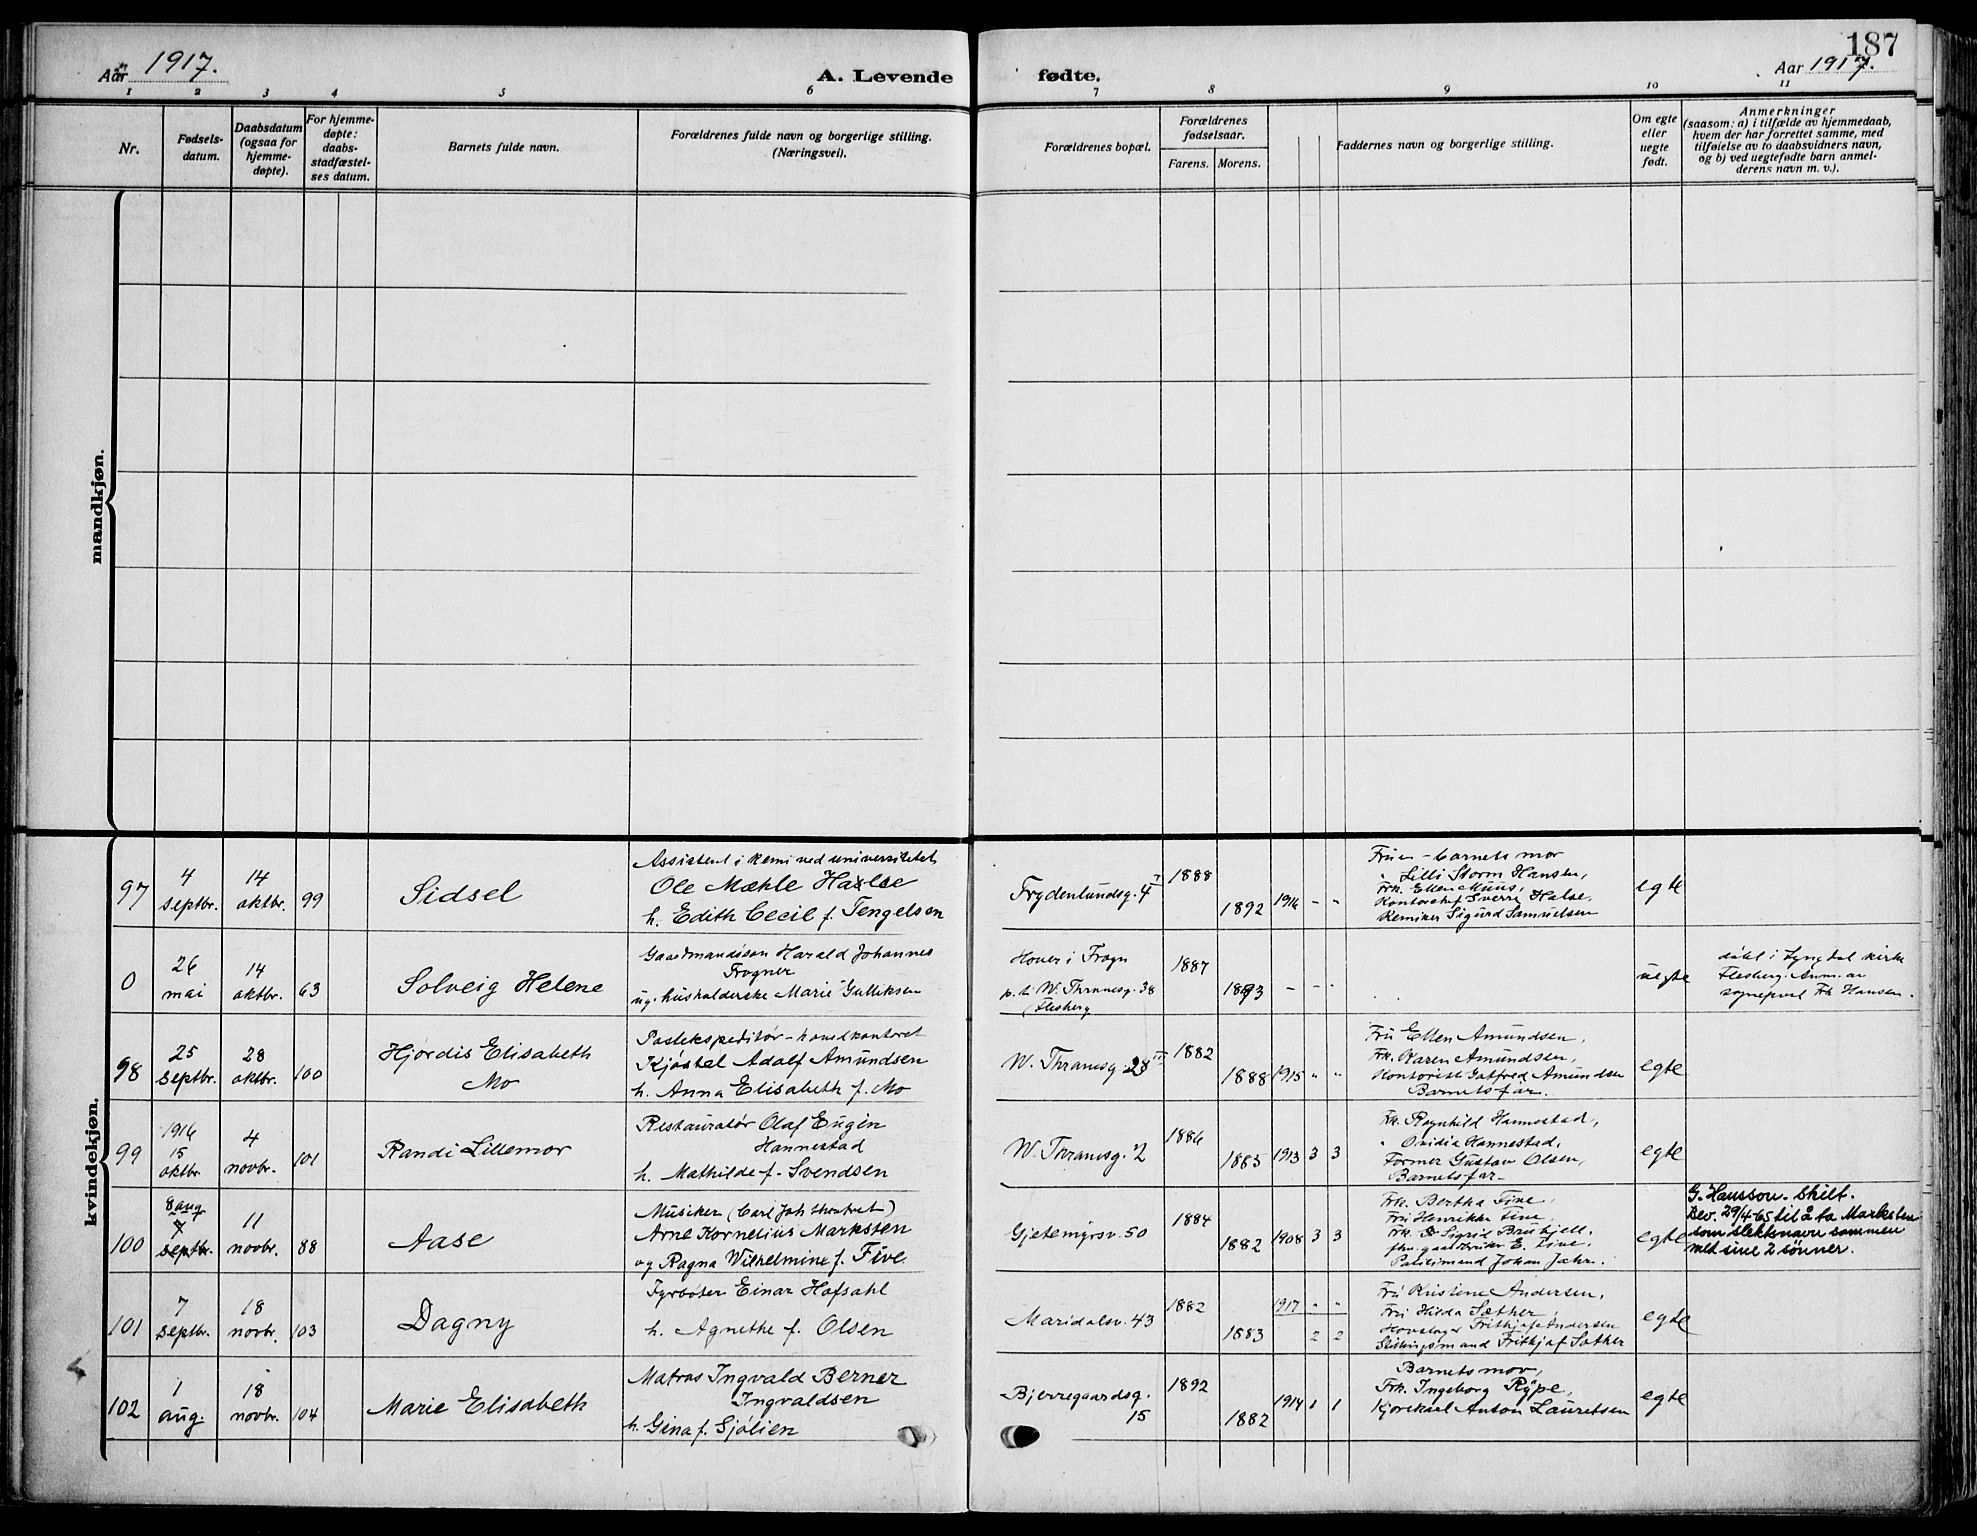 187
Aar 1917.
A. Levende
fødte.
Aar 1917.
1 2 3 4 5 6 7 8 9 10 11
Nr.
Fødsels-
datum.
Daabsdatum
(ogsaa for
hjemme-
døpte).
For hjemme-
døpte:
daabs-
stadfæstel-
ses datum.
Barnets fulde navn.
Forældrenes fulde navn og borgerlige stilling.
(Næringsvei).
Forældrenes bopæl.
Forældrenes
fødselsaar.
Farens. Morens.
Faddernes navn og borgerlige stilling.
Om egte
eller
uegte
født.
Anmerkninger
(saasom: a) i tilfælde av hjemmedaab,
hvem der har forrettet samme, med
tilføielse av to daabsvidners navn,
og b) ved uegtefødte barn anmel-
derens navn m. v.).
mandkjøn.
kvindekjøn.
97
4
septbr.
14
oktbr.
99
Sidsel
Assistent i kemi ved universitetet
Ole Mæhle
h. Edith Cecil f. Tengelsen
Frydenlundsg. 4
1888
1892
1916 - "
Fruen - barnets mor
" Lilli Storm Hansten,
Frk. Ellen Muus,
Kontorchef Sverre Halse,
Kemiker Sigurd Samuelsen
egte
0
26
mai
14
oktbr.
63
Solveig Helene
Gaardmandssøn Harald Johannes
Frogner
ug. husholderske Marie Gulliksen
Hover i Frogn
p. t. W. Thranesg. 38
Flesberg
1887
1893
- - "
uegte
døbt i Lyngdal kirke
Flesberg. Anm. av
sognepræst Fr. Hansen.
98
25
septbr.
28
oktbr.
100
Hjørdis Elisabeth
Mo
Postekspeditør - hovedkontoret
Kjøstel Adolf Amundsen
h. Anna Elisabeth f. Mo
W. Thranesg. 28
1882
1888
1915 " "
Fru Ellen Amundsen,
Frk. Karen Amundsen,
Kontorist Gotfred Amundsen
Barnets far.
egte
99
1916
15
oktbr.
4
novbr.
101
Randi Lillemor
Restauratør Olaf Eugen
Hannestad
h. Mathilde f. Svendsen
W. Thranesg. 2
1886
1885
1913 3 3
Frk. Ragnhild Hannestad,
" Ovidia Hannestad,
Former Gustav Olsen,
Barnets far -
egte
100
8 aug
7
septbr.
11
novbr.
88
Aase
Musiker (Carl Joh. theatret)
Arne Kornelius Marksten
og Ragna Wilhelmine f. Five
Gjetemyrsv. 50
1884
1882
1908 3 3
Frk. Bertha Five,
Fru Henrikke Five,
Frk. Sigrid
E. Five,
Politimand Johan Jahr.
egte
G. Hansson. Skilt.
Bev. 29/4-65 til å ta Marksten
som slektsnavn sammen
med sine 2 sønner.
101
7
septbr.
18
novbr.
103
Dagny
Fyrbøter Einar Hofsahl
h. Agnethe f. Olsen
Maridalsv. 43
1882
1883
1917 " "
2 2
Fru Kristine Andersen,
Fru Hilda Sæther,
Hovslager Frithjof Andersen
Frithjof Sæther
egte
102
1
aug.
18
novbr.
104
Marie Elisabeth
Matros Ingvald Berner
Ingvaldsen
h. Gina f. Sjølien
Bjerregaardsg.
15
1892
1882
1914 1 1
Barnets mor,
Frk. Ingeborg Rype,
Kjørekarl Anton Lauretsen
egte